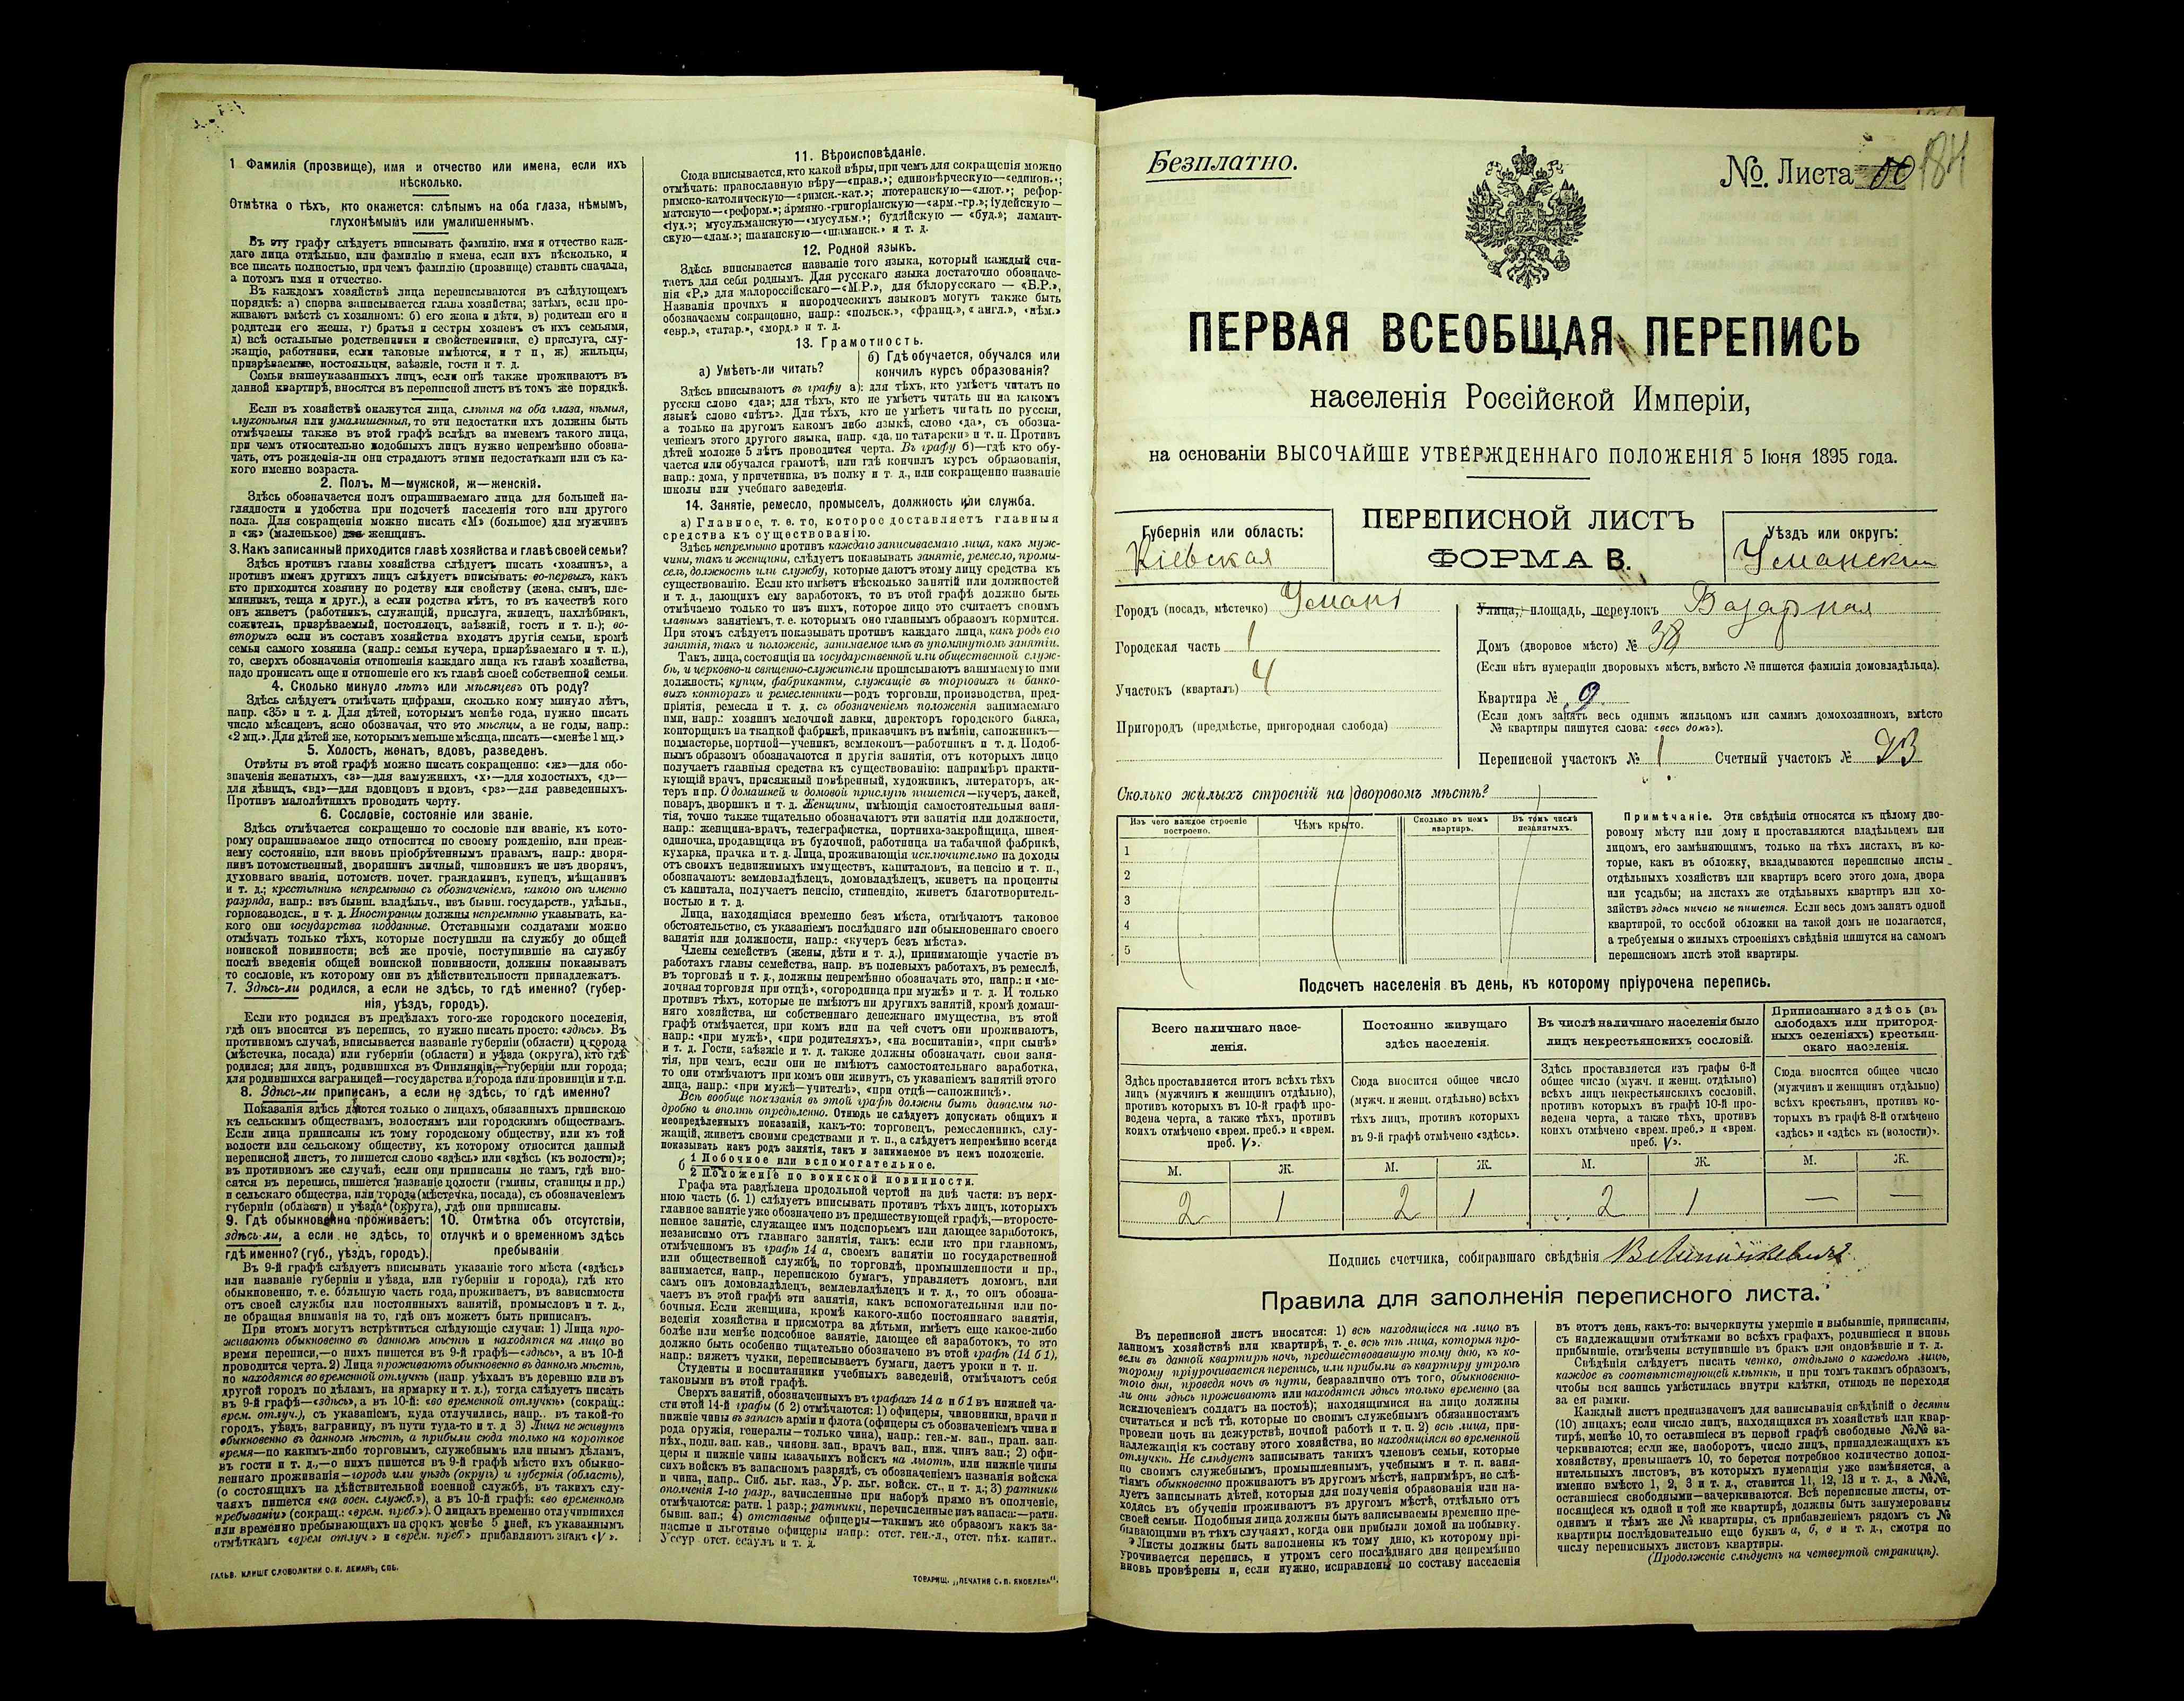 1 Фамилія (прозвище), имя и отчество или имена, если ихъ
нѣсколько.
Отмѣтка о тѣхъ, кто окажется: слѣпымъ на оба глаза, нѣмымъ,
глухонѣмымъ или умалишеннымъ.
Въ эту графу слѣдуетъ вписывать фамилію, имя и отчество каж-
даго лица отдѣльно, или фамилію и имена, если ихъ нѣсколько, и
все писать полностью, при чемъ фамилію (прозвище) ставить сначала,
а потомъ имя и отчество.
Въ каждомъ хозяйствѣ лица переписываются въ слѣдующемъ
порядкѣ: а) сперва записывается глава хозяйства; затѣмъ, если про-
живаютъ вмѣстѣ съ хозяиномъ: б) его жена и дѣти, в) родители его и
родители его жены, г) братья и сестры хозяевъ съ ихъ семьями,
д) всѣ остальные родственники и свойственники, е) прислуга, слу-
жащіе, работники, если таковые имѣются, и т п, ж) жильцы,
призрѣваемые, постояльцы, заѣзжіе, гости и т. д.
Семьи вышеуказанныхъ лицъ, если онѣ также проживаютъ въ
данной квартирѣ, вносятся въ переписной листъ въ томъ же порядкѣ.
Если въ хозяйствѣ окажутся лица, слѣпыя на оба глаза, нѣмыя,
глухонѣмыя или умалишенныя, то эти недостатки ихъ должны быть
отмѣчаемы также въ этой графѣ вслѣдъ за именемъ такого лица,
при чемъ относительно подобныхъ лицъ нужно непремѣнно обозна-
чать, отъ рожденія-ли они страдаютъ этими недостатками или съ ка-
кого именно возраста.
2. Полъ. М—мужской, ж—женскій.
Здѣсь обозначается полъ опрашиваемаго лица для большей на-
глядности и удобства при подсчетѣ населенія того или другого
пола. Для сокращенія можно писать «М» (большое) для мужчинъ
и «ж» (маленькое) для женщинъ.
3. Какъ записанный приходится главѣ хозяйства и главѣ своей семьи?
Здѣсь противъ главы хозяйства слѣдуетъ писать «хозяинъ», а
противъ именъ другихъ лицъ слѣдуетъ вписывать: во-первыхъ, какъ
кто приходится хозяину по родству или свойству (жена, сынъ, пле-
мянникъ, теща и друг.), а если родства нѣтъ, то въ качествѣ кого
онъ живетъ (работникъ, служащій, прислуга, жилецъ, нахлѣбникъ,
сожитель, призрѣваемый, постоялецъ, заѣзжій, гость и т. п.); во-
вторыхъ если въ составъ хозяйства входятъ другія семьи, кромѣ
семьи самого хозяина (напр.: семья кучера, призрѣваемаго и т. п.),
то, сверхъ обозначенія отношенія каждаго лица къ главѣ хозяйства,
надо прописать еще и отношеніе его къ главѣ своей собственной семьи.
4. Сколько минуло лѣтъ или мѣсяцевъ отъ роду?
Здѣсь слѣдуетъ отмѣчать цифрами, сколько кому минуло лѣтъ,
напр. «35» и т. д. Для дѣтей, которымъ менѣе года, нужно писать
число мѣсяцевъ, ясно обозначая, что это мѣсяцы, а не годы, напр.:
«2 мц.». Для дѣтей же, которымъ меньше мѣсяца, писать—«менѣе 1 мц.»
5. Холостъ, женатъ, вдовъ, разведенъ.
Отвѣты въ этой графѣ можно писать сокращенно: «ж»—для обо-
значенія женатыхъ, «з»—для замужнихъ, «х»—для холостыхъ, «д»—
для дѣвицъ, «вд»—для вдовцовъ и вдовъ, «рз»—для разведенныхъ.
Противъ малолѣтнихъ проводить черту.
6. Сословіе, состояніе или званіе.
Здѣсь отмѣчается сокращенно то сословіе или званіе, къ кото-
рому опрашиваемое лицо относится по своему рожденію, или преж-
нему состоянію, или вновь пріобрѣтеннымъ правамъ, напр.: дворя-
нинъ потомственный, дворянинъ личный, чиновникъ не изъ дворянъ,
духовнаго званія, потомств. почет. гражданинъ, купецъ, мѣщанинъ
и т. д.; крестьянинъ непремѣнно съ обозначеніемъ, какого онъ именно
разряда, напр.: изъ бывш. владѣльч., изъ бывш. государств., удѣльн.,
горнозаводск., и т. д. Иностранцы должны непремѣнно указывать, ка-
кого они государства подданные. Отставными солдатами можно
отмѣчать только тѣхъ, которые поступили на службу до общей
воинской повинности; всѣ же прочіе, поступившіе на службу
послѣ введенія общей воинской повинности, должны показывать
то сословіе, къ которому они въ дѣйствительности принадлежатъ.
7. Здѣсь-ли родился, а если не здѣсь, то гдѣ именно? (губер-
нія, уѣздъ, городъ).
Если кто родился въ предѣлахъ того-же городского поселенія,
гдѣ онъ вносится въ перепись, то нужно писать просто: «здѣсь». Въ
противномъ случаѣ, вписывается названіе губерніи (области) и города
(мѣстечка, посада) или губерніи (области) и уѣзда (округа), кто гдѣ
родился; для лицъ, родившихся въ Финляндіи,—губерніи или города;
для родившихся заграницей—государства и города или провинціи и т.п.
8. Здѣсь-ли приписанъ, а если не здѣсь, то гдѣ именно?
Показанія здѣсь даются только о лицахъ, обязанныхъ припискою
къ сельскимъ обществамъ, волостямъ или городскимъ обществамъ.
Если лица приписаны къ тому городскому обществу, или къ той
волости или сельскому обществу, къ которому относится данный
переписной листъ, то пишется слово «здѣсь» или «здѣсь (къ волости)»;
въ противномъ же случаѣ, если они приписаны не тамъ, гдѣ вно-
сятся въ перепись, пишется названіе волости (гмины, станицы и пр.)
и сельскаго общества, или города (мѣстечка, посада), съ обозначеніемъ
губерніи (области) и уѣзда (округа), гдѣ они приписаны.
9. Гдѣ обыкновенно проживаетъ: здѣсь-ли, а если не здѣсь, то гдѣ именно? (губ., уѣздъ, городъ).
10. Отмѣтка объ отсутствіи, отлучкѣ и о временномъ здѣсь пребываніи
Въ 9-й графѣ слѣдуетъ вписывать указаніе того мѣста («здѣсь»
или названіе губерніи и уѣзда, или губерніи и города), гдѣ кто
обыкновенно, т. е. бóльшую часть года, проживаетъ, въ зависимости
отъ своей службы или постоянныхъ занятій, промысловъ и т. д.,
не обращая вниманія на то, гдѣ онъ можетъ быть приписанъ.
При этомъ могутъ встрѣтиться слѣдующіе случаи: 1) Лица про-
живаютъ обыкновенно въ данномъ мѣстѣ и находятся на лицо во
время переписи,—о нихъ пишется въ 9-й графѣ—«здѣсь», а въ 10-й
проводится черта. 2) Лица проживаютъ обыкновенно въ данномъ мѣстѣ,
но находятся во временной отлучкѣ (напр. уѣхалъ въ деревню или въ
другой городъ по дѣламъ, на ярмарку и т. д.), тогда слѣдуетъ писать
въ 9-й графѣ—«здѣсь», а въ 10-й: «во временной отлучкѣ» (сокращ.:
врем. отлуч.), съ указаніемъ, куда отлучились, напр.. въ такой-то
городъ, уѣздъ, заграницу, въ пути туда-то и т. д 3) Лица не живутъ
обыкновенно въ данномъ мѣстѣ, а прибыли сюда только на короткое
время—по какимъ-либо торговымъ, служебнымъ или инымъ дѣламъ,
въ гости и т. д.,—о нихъ пишется въ 9-й графѣ мѣсто ихъ обыкно-
веннаго проживанія—городъ или уѣздъ (округъ) и губернія (область),
(о состоящихъ на дѣйствительной военной службѣ, въ такихъ слу-
чаяхъ пишется «на воен. служб.»), а въ 10-й графѣ: «во временномъ
пребываніи» (сокращ.: «врем. преб.»). О лицахъ временно отлучившихся
или временно пребывающихъ на срокъ менѣе 5 дней, къ указаннымъ
отмѣткамъ «врем отлуч» и «врем. преб.» прибавляютъ знакъ «V».
ГАЛЬВ. КЛИШЕ СЛОВОЛИТНИ О. И. ЛЕМАНЪ, СПБ.
11. Вѣроисповѣданіе.
Сюда вписывается, кто какой вѣры, при чемъ для сокращенія можно
отмѣчать: православную вѣру—«прав.»; единовѣрческую—«единов.»;
римско-католическую—«римск.-кат.»; лютеранскую—«лют.»; рефор-
матскую—«реформ.»; армяно-григоріанскую—«арм.-гр.»; іудейскую—
«іуд.»; мусульманскую—«мусульм.»; буддійскую — «буд.»; ламаит-
скую—«лам.»; шаманскую—«шаманск.» и т. д.
12. Родной языкъ.
Здѣсь вписывается названіе того языка, который каждый счи-
таетъ для себя роднымъ. Для русскаго языка достаточно обозначе-
нія «Р.» для малороссійскаго—«М.Р.», для бѣлорусскаго — «Б.Р.»,
Названія прочихъ и инородческихъ языковъ могутъ также быть
обозначаемы сокращонно, напр.: «польск.», «франц.», «англ.», «нѣм.»
«евр.», «татар.», «морд.» и т. д.
13. Грамотность.
а) Умѣетъ-ли читать?
б) Гдѣ обучается, обучался или кончилъ курсъ образованія?
Здѣсь вписываютъ въ графу а): для тѣхъ, кто умѣетъ читать по
русски слово «да»; для тѣхъ, кто не умѣетъ читать ни на какомъ
языкѣ слово «нѣтъ». Для тѣхъ, кто не умѣетъ читать по русски,
а только на другомъ какомъ либо языкѣ, слово «да», съ обозна-
ченіемъ этого другого языка, напр. «да, по татарски» и т. п. Противъ
дѣтей моложе 5 лѣтъ проводится черта. Въ графу б)—гдѣ кто обу-
чается или обучался грамотѣ, или гдѣ кончилъ курсъ образованія,
напр.: дома, у причетника, въ полку и т. д., или сокращенно названіе
школы или учебнаго заведенія.
14. Занятіе, ремесло, промыселъ, должность или служба.
а) Главное, т. е. то, которое доставляетъ главныя
средства къ существованію.
Здѣсь непремѣнно противъ каждаго записываемаго лица, какъ муж-
чины, такъ и женщины, слѣдуетъ показывать занятіе, ремесло, промы-
селъ, должность или службу, которые даютъ этому лицу средства къ
существованію. Если кто имѣетъ нѣсколько занятій или должностей
и т. д., дающихъ ему заработокъ, то въ этой графѣ должно быть
отмѣчаемо только то изъ нихъ, которое лицо это считаетъ своимъ
главнымъ занятіемъ, т. е. которымъ оно главнымъ образомъ кормится.
При этомъ слѣдуетъ показывать противъ каждаго лица, какъ родъ его
занятія, такъ и положеніе, занимаемое имъ въ упомянутомъ занятіи.
Такъ, лица, состоящія на государственной или общественной служ-
бѣ, и церковно-и священно-служители прописываютъ занимаемую ими
должность; купцы, фабриканты, служащіе въ торговыхъ и банко-
выхъ конторахъ и ремесленники—родъ торговли, производства, пред-
пріятія, ремесла и т. д. съ обозначеніемъ положенія занимаемаго
ими, напр.: хозяинъ мелочной лавки, директоръ городского банка,
конторщикъ на ткацкой фабрикѣ, приказчикъ въ имѣніи, сапожникъ—
подмастерье, портной—ученикъ, землекопъ—работникъ и т. д. Подоб-
нымъ образомъ обозначаются и другія занятія, отъ которыхъ лицо
получаетъ главныя средства къ существованію: напримѣръ практи-
кующій врачъ, присяжный повѣренный, художникъ, литераторъ, ак-
теръ и пр. О домашней и домовой прислугѣ пишется—кучеръ, лакей,
поваръ, дворникъ и т. д. Женщины, имѣющія самостоятельныя заня-
тія, точно также тщательно обозначаютъ эти занятія или должности,
напр.: женщина-врачъ, телеграфистка, портниха-закройщица, швея-
одиночка, продавщица въ булочной, работница на табачной фабрикѣ,
кухарка, прачка и т. д. Лица, проживающія исключительно на доходы
отъ своихъ недвижимыхъ имуществъ, капиталовъ, на пенсію и т. п.,
обозначаютъ: землевладѣлецъ, домовладѣлецъ, живетъ на проценты
съ капитала, получаетъ пенсію, стипендію, живетъ благотворитель-
ностью и т. д.
Лица, находящіяся временно безъ мѣста, отмѣчаютъ таковое
обстоятельство, съ указаніемъ послѣдняго или обыкновеннаго своего
занятія или должности, напр.: «кучеръ безъ мѣста».
Члены семействъ (жены, дѣти и т. д.), принимающіе участіе въ
работахъ главы семейства, напр. въ полевыхъ работахъ, въ ремеслѣ,
въ торговлѣ и т. д., должны непремѣнно обозначать это, напр.: и «ме-
лочная торговля при отцѣ», «огородница при мужѣ» и т. д. И только
противъ тѣхъ, которые не имѣютъ ни другихъ занятій, кромѣ домаш-
няго хозяйства, ни собственнаго денежнаго имущества, въ этой
графѣ отмѣчается, при комъ или на чей счетъ они проживаютъ,
напр.: «при мужѣ», «при родителяхъ», «на воспитаніи», «при сынѣ»
и т. д. Гости, заѣзжіе и т. д. также должны обозначать свои заня-
тія, при чемъ, если они не имѣютъ самостоятельнаго заработка,
то они отмѣчаютъ при комъ они живутъ, съ указаніемъ занятій этого
лица, напр.: «при мужѣ—учителѣ», «при отцѣ—сапожникѣ».
Всѣ вообще показанія въ этой графѣ должны быть даваемы по-
дробно и вполнѣ опредѣленно. Отнюдь не слѣдуетъ допускать общихъ и
неопредѣленныхъ показаній, какъ-то: торговецъ, ремесленникъ, слу-
жащій, живетъ своими средствами и т. п., а слѣдуетъ непремѣнно всегда
показывать какъ родъ занятія, такъ и занимаемое въ немъ положеніе.
б 1 Побочное или вспомогательное.
2 Положеніе по воинской повинности.
Графа эта раздѣлена продольной чертой на двѣ части: въ верх-
нюю часть (б. 1) слѣдуетъ вписывать противъ тѣхъ лицъ, которыхъ
главное занятіе уже обозначено въ предшествующей графѣ,—второсте-
пенное занятіе, служащее имъ подспорьемъ или дающее заработокъ,
независимо отъ главнаго занятія, такъ: если кто при главномъ,
отмѣченномъ въ графѣ 14 а, своемъ занятіи по государственной
или общественной службѣ, по торговлѣ, промышленности и пр.,
занимается, напр., перепискою бумагъ, управляетъ домомъ, или
самъ онъ домовладѣлецъ, землевладѣлецъ и т. д., то онъ обозна-
чаетъ въ этой графѣ эти занятія, какъ вспомогательныя или по-
бочныя. Если женщина, кромѣ какого-либо постояннаго занятія,
веденія хозяйства и присмотра за дѣтьми, имѣетъ еще какое-либо
болѣе или менѣе подсобное занятіе, дающее ей заработокъ, то это
должно быть особенно тщательно обозначено въ этой графѣ (14 б 1),
напр.: вяжетъ чулки, переписываетъ бумаги, даетъ уроки и т. п.
Студенты и воспитанники учебныхъ заведеній, отмѣчаютъ себя
таковыми въ этой графѣ.
Сверхъ занятій, обозначенныхъ въ графахъ 14 а и б 1 въ нижней ча-
сти этой 14-й графы (б 2) отмѣчаются: 1) офицеры, чиновники, врачи и
нижніе чины въ запасѣ арміи и флота (офицеры съ обозначеніемъ чина и
рода оружія, генералы—только чина), напр.: ген.-м. зап., прап. зап.
пѣх., подп. зап. кав., чиновн. зап., врачъ зап., ниж. чинъ зап.; 2) офи-
церы и нижніе чины казачьихъ войскъ на льготѣ, или нижніе чины
сихъ войскъ въ запасномъ разрядѣ, съ обозначеніемъ названія войска
и чина, напр.. Сиб. льг. каз., Ур. льг. войск. ст., и т. д.; 3) ратники
ополченія 1-го разр., зачисленные при наборѣ прямо въ ополченіе,
отмѣчаются: ратн. 1 разр.; ратники, перечисленные изъ запаса:—ратн.
бывш. зап.; 4) отставные офицеры—такимъ же образомъ какъ за-
пасные и льготные офицеры напр.: отст. ген.-л., отст. пѣх. капит.,
Уссур отст. есаулъ и т. д.
ТОВАРИЩ. „ПЕЧАТНЯ С. П. ЯКОВЛЕВА“.
Безплатно.
№. Листа 184
ПЕРВАЯ ВСЕОБЩАЯ ПЕРЕПИСЬ
населенія Россійской Имперіи,
на основаніи ВЫСОЧАЙШЕ УТВЕРЖДЕННАГО ПОЛОЖЕНІЯ 5 Іюня 1895 года.
ПЕРЕПИСНОЙ ЛИСТЪ
ФОРМА В.
Губернія или область:
Кіевская
Уѣздъ или округъ:
Уманскій
Городъ (посадъ, мѣстечко) Умань
Городская часть 1
Участокъ (кварталъ) 4
Пригородъ (предмѣстье, пригородная слобода)
Улица, площадь, переулокъ Базарная
Домъ (дворовое мѣсто) № 38
(Если нѣтъ нумераціи дворовыхъ мѣстъ, вмѣсто № пишется фамилія домовладѣльца).
Квартира № 9
(Если домъ занятъ весь однимъ жильцомъ или самимъ домохозяиномъ, вмѣсто
№ квартиры пишутся слова: «весь домъ»).
Переписной участокъ № 1 Счетный участокъ № 23
Сколько жилыхъ строеній на дворовомъ мѣстѣ?
Изъ чего каждое строеніе построено.
Чѣмъ крыто.
Сколько въ немъ квартиръ.
Въ томъ числѣ незанятыхъ.
1
2
3
4
5
Примѣчаніе. Эти свѣдѣнія относятся къ цѣлому дво-
ровому мѣсту или дому и проставляются владѣльцемъ или
лицомъ, его замѣняющимъ, только на тѣхъ листахъ, въ ко-
торые, какъ въ обложку, вкладываются переписные листы
отдѣльныхъ хозяйствъ или квартиръ всего этого дома, двора
или усадьбы; на листахъ же отдѣльныхъ квартиръ или хо-
зяйствъ здѣсь ничего не пишется. Если весь домъ занятъ одной
квартирой, то особой обложки на такой домъ не полагается,
а требуемыя о жилыхъ строеніяхъ свѣдѣнія пишутся на самомъ
переписномъ листѣ этой квартиры.
Подсчетъ населенія въ день, къ которому пріурочена перепись.
Всего наличнаго насе-
ленія.
Постоянно живущаго
здѣсь населенія.
Въ числѣ наличнаго населенія было
лицъ некрестьянскихъ сословій.
Приписаннаго здѣсь (въ
слободахъ или пригород-
ныхъ селеніяхъ) крестьян-
скаго населенія.
Здѣсь проставляется итогъ всѣхъ тѣхъ
лицъ (мужчинъ и женщинъ отдѣльно),
противъ которыхъ въ 10-й графѣ про-
ведена черта, а также тѣхъ, противъ
коихъ отмѣчено «врем. преб.» и «врем.
преб. V».
Сюда вносится общее число
(мужч. и женщ. отдѣльно) всѣхъ
тѣхъ лицъ, противъ которыхъ
въ 9-й графѣ отмѣчено «здѣсь».
Здѣсь проставляется изъ графы 6-й
общее число (мужч. и женщ. отдѣльно)
всѣхъ лицъ некрестьянскихъ сословій,
противъ которыхъ въ графѣ 10-й про-
ведена черта, а также тѣхъ, противъ
коихъ отмѣчено «врем. преб.» и «врем.
преб. V».
Сюда вносится общее число
(мужчинъ и женщинъ отдѣльно)
всѣхъ крестьянъ, противъ ко-
торыхъ въ графѣ 8-й отмѣчено
«здѣсь» и «здѣсь къ (волости)».
М. Ж. М. Ж. М. Ж. М. Ж.
2 1 2 1 2 1 — —
Подпись счетчика, собиравшаго свѣдѣнія
Правила для заполненія переписного листа.
Въ переписной листъ вносятся: 1) всѣ находящіеся на лицо въ
данномъ хозяйствѣ или квартирѣ, т. е. всѣ тѣ лица, которыя про-
вели въ данной квартирѣ ночь, предшествовавшую тому дню, къ ко-
торому пріурочивается перепись, или прибыли въ квартиру утромъ
того дня, проведя ночь въ пути, безразлично отъ того, обыкновенно-
ли они здѣсь проживаютъ или находятся здѣсь только временно (за
исключеніемъ солдатъ на постоѣ); находящимися на лицо должны
считаться и всѣ тѣ, которые по своимъ служебнымъ обязанностямъ
провели ночь на дежурствѣ, ночной работѣ и т. п. 2) всѣ лица, при-
надлежащія къ составу этого хозяйства, но находящіяся во временной
отлучкѣ. Не слѣдуетъ записывать такихъ членовъ семьи, которые
по своимъ служебнымъ, промышленнымъ, учебнымъ и т. п. заня-
тіямъ обыкновенно проживаютъ въ другомъ мѣстѣ, напримѣръ, не слѣ-
дуетъ записывать дѣтей, которыя для полученія образованія или на-
ходясь въ обученіи проживаютъ въ другомъ мѣстѣ, отдѣльно отъ
своей семьи. Подобныя лица должны быть записываемы временно пре-
бывающими въ тѣхъ случаяхъ, когда они прибыли домой на побывку.
Листы должны быть заполнены къ тому дню, къ которому прі-
урочивается перепись, и утромъ сего послѣдняго дня непремѣнно
вновь провѣрены и, если нужно, исправлены по составу населенія
въ этотъ день, какъ-то: вычеркнуты умершіе и выбывшіе, приписаны,
съ надлежащими отмѣтками во всѣхъ графахъ, родившіеся и вновь
прибывшіе, отмѣчены вступившіе въ бракъ или овдовѣвшіе и т. д.
Свѣдѣнія слѣдуетъ писать четко, отдѣльно о каждомъ лицѣ,
каждое въ соотвѣтствующей клѣткѣ, и при томъ такимъ образомъ,
чтобы вся запись умѣстилась внутри клѣтки, отнюдь не переходя
за ея рамки.
Каждый листъ предназначенъ для записыванія свѣдѣній о десяти
(10) лицахъ; если число лицъ, находящихся въ хозяйствѣ или квар-
тирѣ, менѣе 10, то оставшіеся въ первой графѣ свободные №№ за-
черкиваются; если же, наоборотъ, число лицъ, принадлежащихъ къ
хозяйству, превышаетъ 10, то берется потребное количество допол-
нительныхъ листовъ, въ которыхъ нумерація уже измѣняется, а
именно вмѣсто 1, 2, 3 и т. д., ставится 11, 12, 13 и т. д., а №№,
оставшіеся свободными—зачеркиваются. Всѣ переписные листы, от-
носящіеся къ одной и той же квартирѣ, должны быть занумерованы
однимъ и тѣмъ же № квартиры, съ прибавленіемъ рядомъ съ №
квартиры послѣдовательно еще буквъ а, б, в и т. д., смотря по
числу переписныхъ листовъ квартиры.
(Продолженіе слѣдуетъ на четвертой страницѣ).